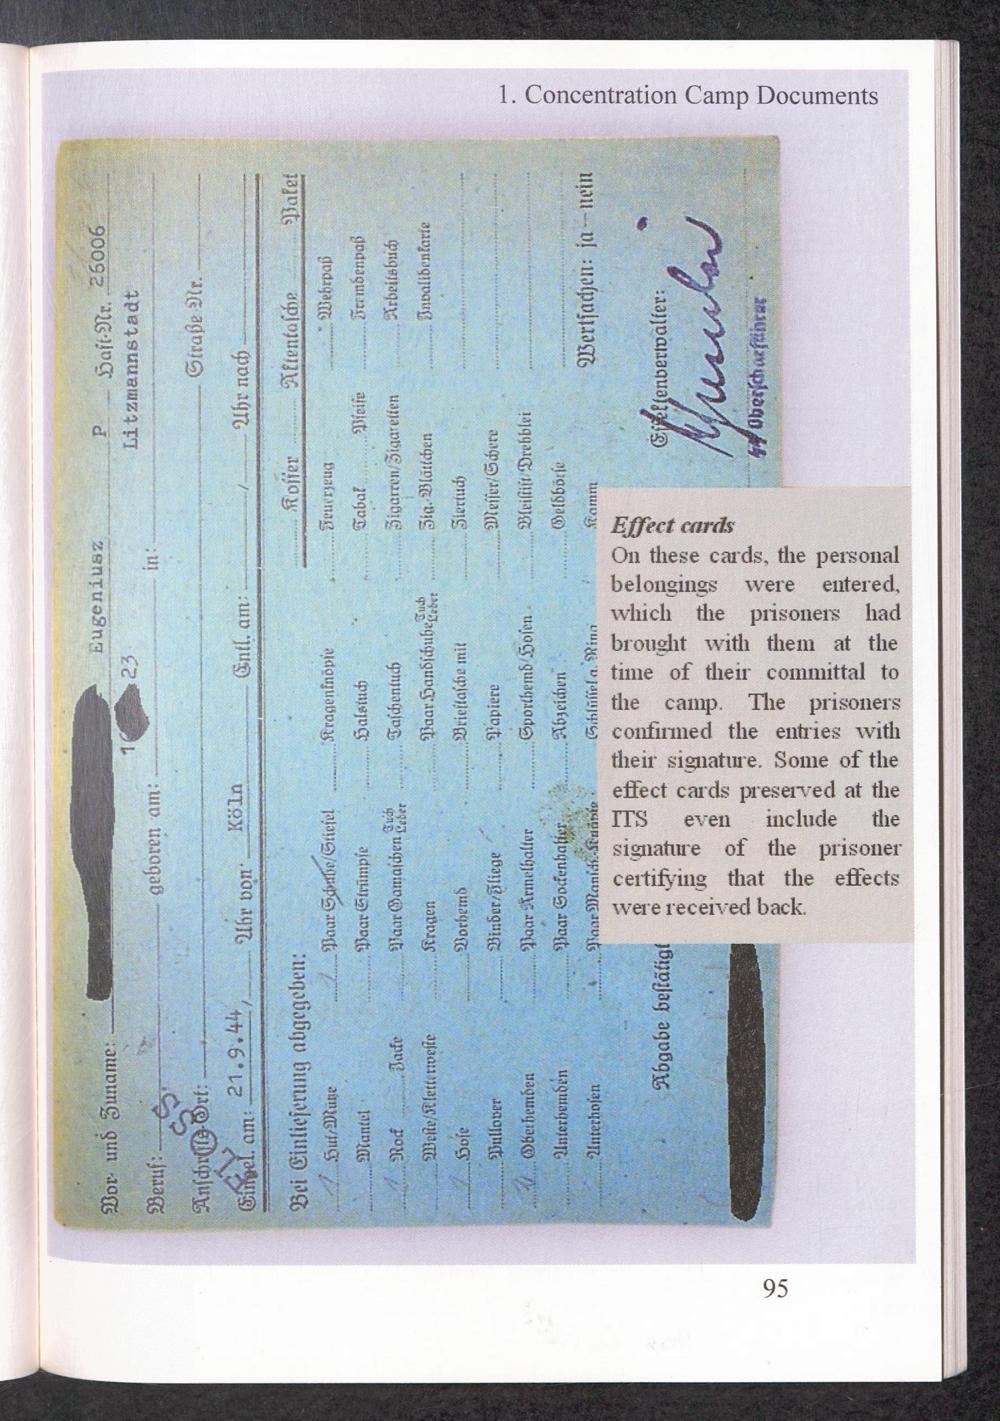 1. Concentration Camp Documents
Vor- und Zuname: Eugeniusz P Haft-Nr. 26006
Beruf: geboren am: 1 23 in: Litzmannstadt
Anschr. Ort: Straße Nr.
Eingel. am: 21.9.44, Uhr von Köln Entl. am: Uhr nach
Bei Einlieferung abgegeben: Koffer Aktentasche Paket
1 Hut/Mütze 1 Paar Schuhe/Stiefel Kragenknöpfe Feuerzeug Wehrpaß
Mantel Paar Strümpfe Halstuch Tabak Pfeife Fremdenpaß
1 Rock Jacke Paar Gamaschen Tuch Leder Taschentuch Zigarren/Zigaretten Arbeitsbuch
Weste/Kletterweste Kragen Paar Handschuhe Tuch Leder Zig.-Blättchen Invalidenkarte
1 Hose Vorhemd Brieftasche mit Ziertuch
Pullover Binder/Fliege Papiere Messer/Schere
Oberhemden Paar Ärmelhalter Sporthemd/Hosen Bleistift/Drehblei
Unterhemden Paar Sockenhalter Abzeichen Geldbörse
Unterhosen Paar Kamm Wertsachen: ja – nein
Abgabe bestätigt Effektenverwalter:
SS Oberscharführer
Effect cards
On these cards, the personal
belongings were entered,
which the prisoners had
brought with them at the
time of their committal to
the camp. The prisoners
confirmed the entries with
their signature. Some of the
effect cards preserved at the
ITS even include the
signature of the prisoner
certifying that the effects
were received back.
95